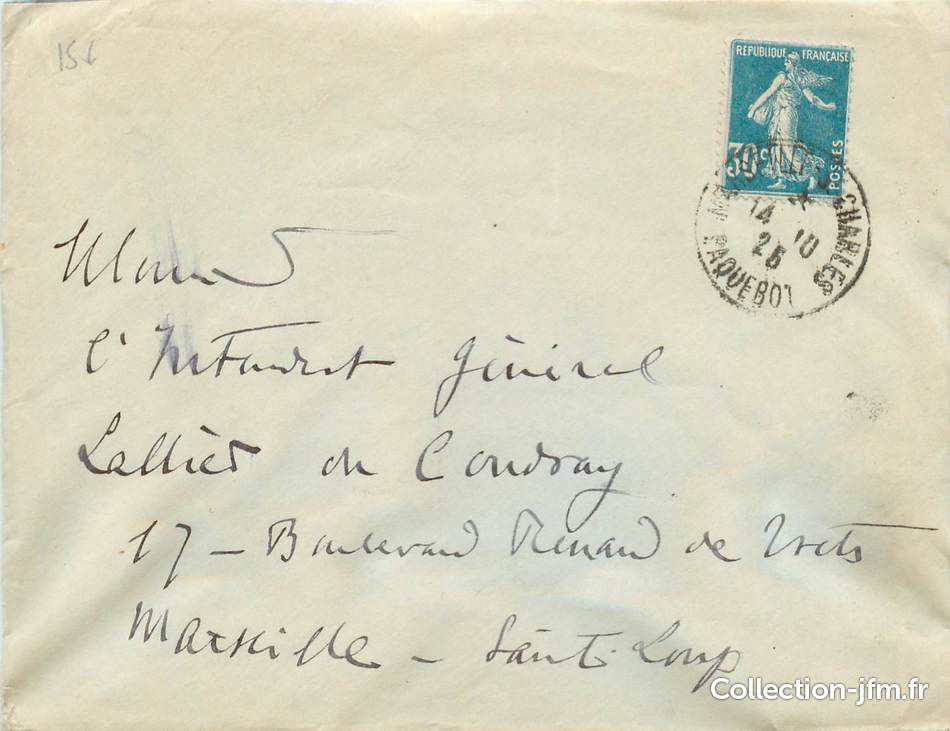 15€
RÉPUBLIQUE FRANÇAISE
30c
POSTES
MARSEILLE ST CHARLES
14 10
26
PAQUEBOT
Monsieur
l'Intendant Général
Lallier du Coudray
17 - Boulevard Renard de
Marseille - Saint-Loup
Collection-jfm.fr